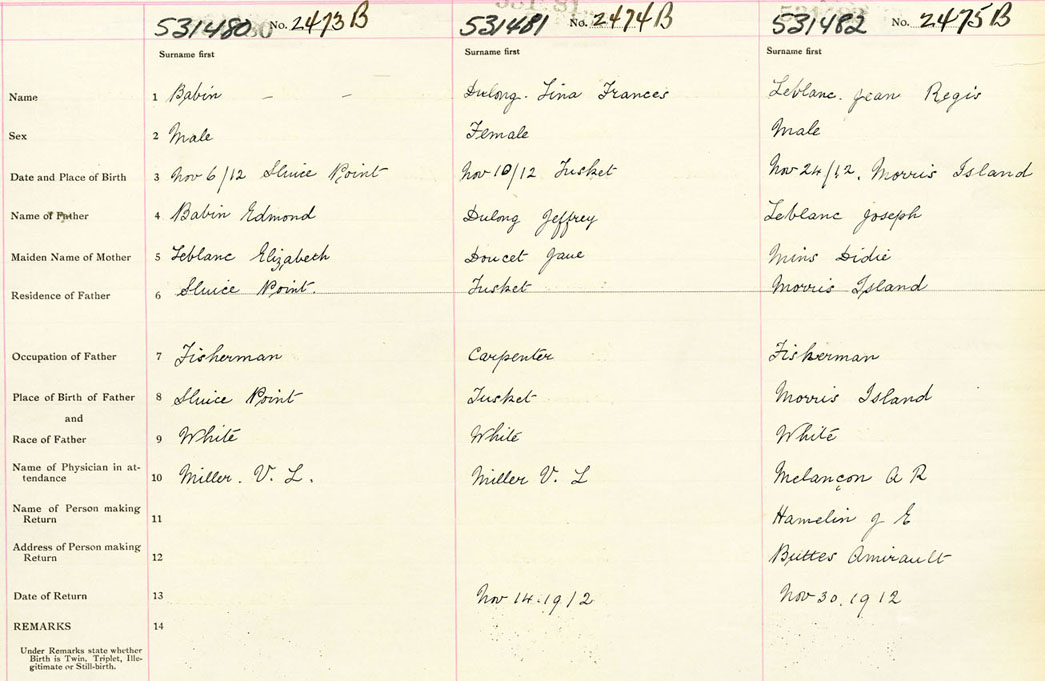 531480 No. 2473B 531481 No. 2474B 531482 No. 2475B
Surname first Surname first Surname first
Name 1 Babin — — Dulong. Lina Frances Leblanc. Jean Regis
Sex 2 Male Female Male
Date and Place of Birth 3 Nov 6/12 Sluice Point Nov 10/12 Tusket Nov 24/12, Morris Island
Name of Father 4 Babin Edmond Dulong Jeffrey Leblanc Joseph
Maiden Name of Mother 5 Leblanc Elizabeth Doucet Jane Mins Didie
Residence of Father 6 Sluice Point. Tusket Morris Island
Occupation of Father 7 Fisherman Carpenter Fisherman
Place of Birth of Father 8 Sluice Point Tusket Morris Island
and
Race of Father 9 White White White
Name of Physician in at-
tendance 10 Miller. V. L. Miller V. L Melançon A R
Name of Person making
Return 11 Hamelin J E
Address of Person making
Return 12 Buttes Amirault
Date of Return 13 Nov 14.1912 Nov 30.1912
REMARKS 14
Under Remarks state whether
Birth is Twin, Triplet, Ille-
gitimate or Still-birth.